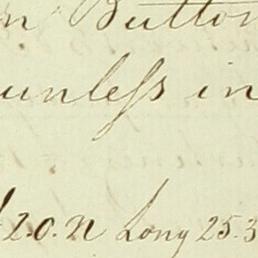 n Button
unleſs in
2.0. N Long 25.3